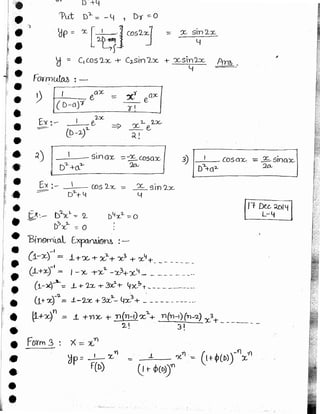 D²+4
Put D² = -4 , Dr = 0
yp = x [ 1/2D ] cos2x = x sin2x / 4
y = C₁cos2x + C₂sin2x + x sin2x / 4 Ans.
Formulas :—
1) 1/(D-a)^r e^ax = x^r/r! e^ax
Ex :- 1/(D-2)² e^2x => x²/2! e^2x
2) 1/(D²+a²) sin ax = -x/2a cos ax 3) 1/(D²+a²) cos ax = x/2a sin ax
Ex :- 1/(D²+4) cos 2x = x/4 sin 2x
17 Dec 2014
L-4
Ex:- D²x² = 2 D⁴x² = 0
D³x² = 0
Binomial Expansions :—
(1-x)⁻¹ = 1+x+x²+x³+x⁴+------
(1+x)⁻¹ = 1-x+x²-x³+x⁴------
(1-x)⁻² = 1+2x+3x²+4x³+------
(1+x)⁻² = 1-2x+3x²-4x³+------
(1+x)ⁿ = 1+nx+ n(n-1)/2! x² + n(n-1)(n-2)/3! x³+------
Form 3 : X = xⁿ
yp = 1/F(D) xⁿ = 1/(1+φ(D))ⁿ xⁿ = (1+φ(D))⁻ⁿ xⁿ